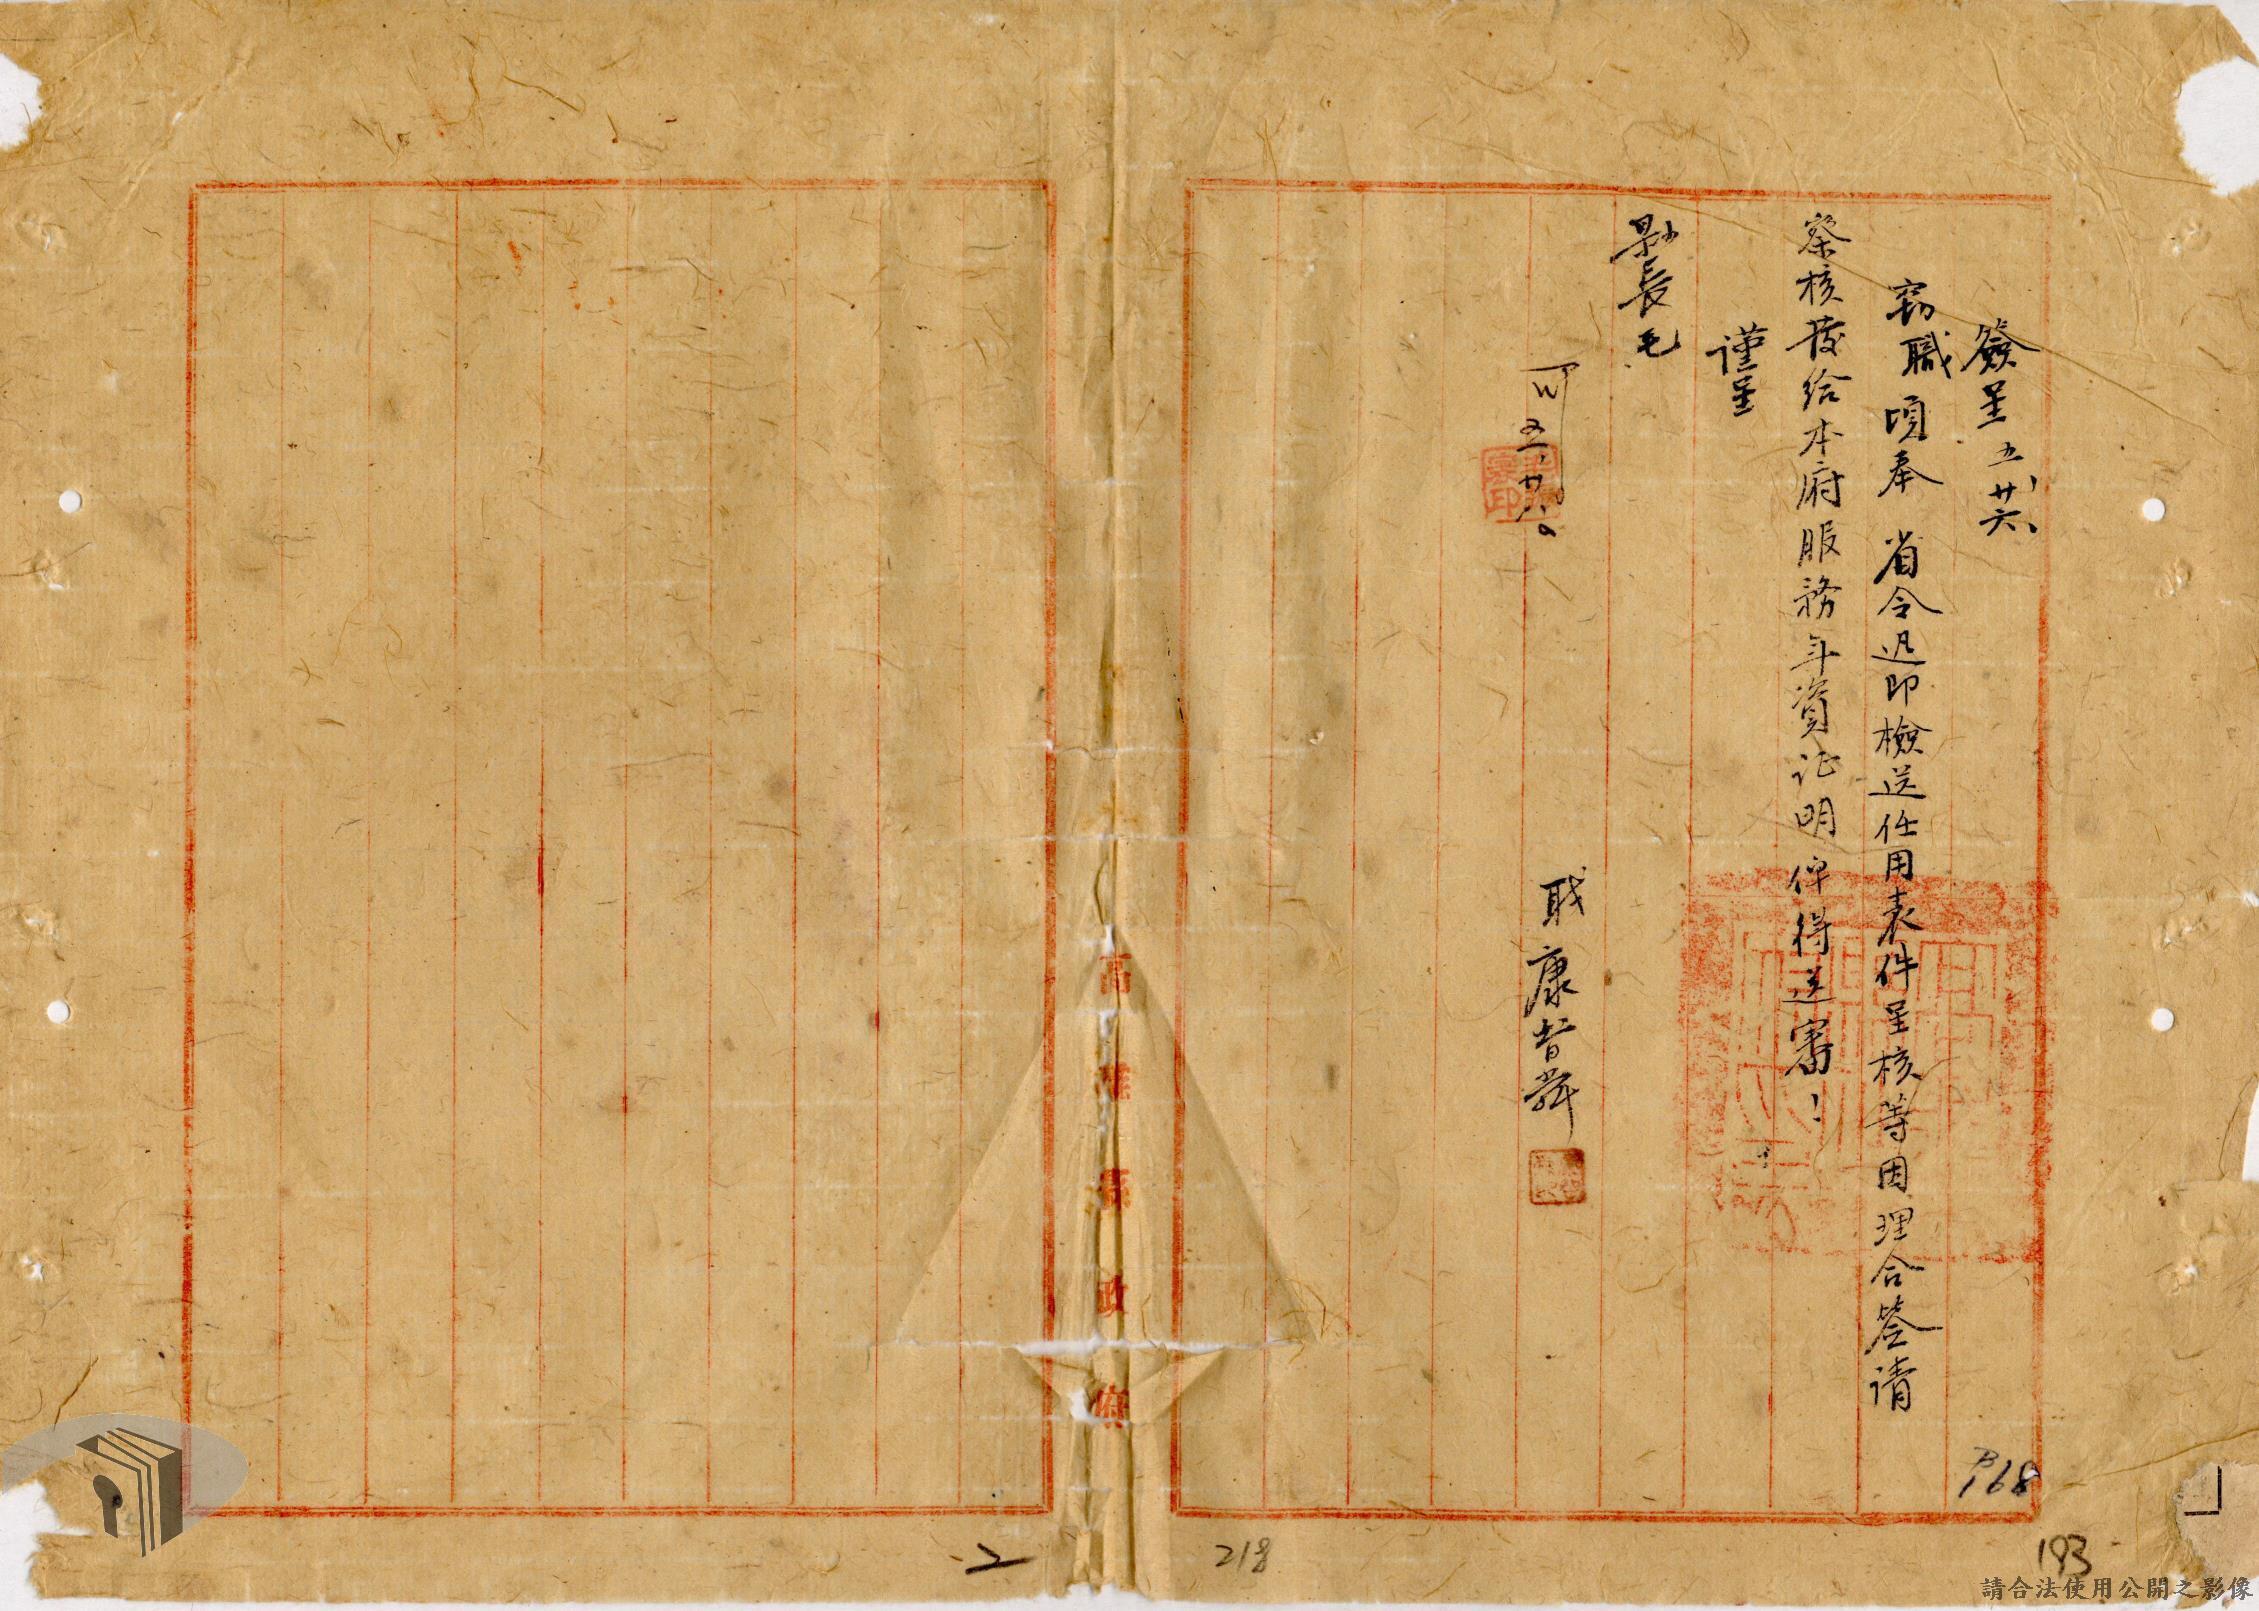 簽呈 五、廿六、
竊職頃奉 省令迅即檢送任用表件呈核等因理合簽請
察核發給本府服務年資证明俾得送審！
謹呈
縣長毛
可 五、廿八。
職康
高雄縣政府
P168
193
218
2
請合法使用公開之影像